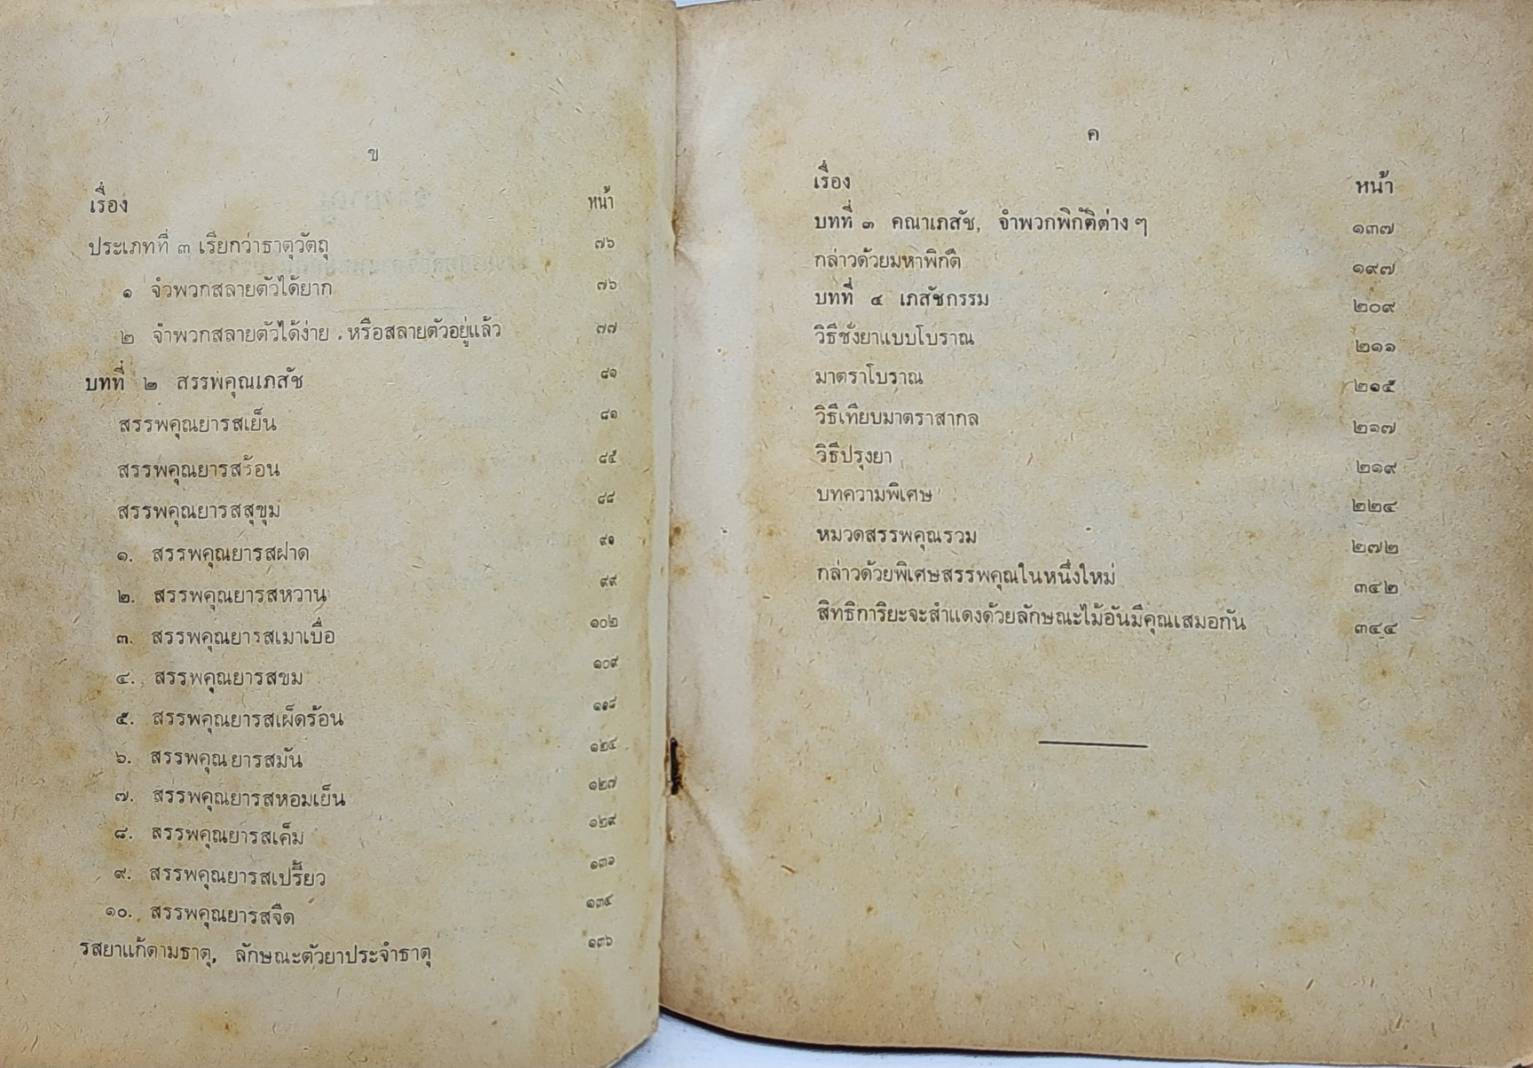 ข
เรื่อง หน้า
ประเภทที่ ๓ เรียกว่าธาตุวัตถุ ๗๖
๑ จำพวกสลายตัวได้ยาก ๗๖
๒ จำพวกสลายตัวได้ง่าย . หรือสลายตัวอยู่แล้ว ๗๗
บทที่ ๒ สรรพคุณเภสัช ๘๑
สรรพคุณยารสเย็น ๘๑
สรรพคุณยารสร้อน ๘๕
สรรพคุณยารสสุขุม ๘๘
๑. สรรพคุณยารสฝาด ๙๑
๒. สรรพคุณยารสหวาน ๙๙
๓. สรรพคุณยารสเมาเบื่อ ๑๐๒
๔. สรรพคุณยารสขม ๑๐๙
๕. สรรพคุณยารสเผ็ดร้อน ๑๑๘
๖. สรรพคุณยารสมัน ๑๒๔
๗. สรรพคุณยารสหอมเย็น ๑๒๗
๘. สรรพคุณยารสเค็ม ๑๒๙
๙. สรรพคุณยารสเปรี้ยว ๑๓๑
๑๐. สรรพคุณยารสจืด ๑๓๔
รสยาแก้ตามธาตุ, ลักษณะตัวยาประจำธาตุ ๑๓๖
ค
เรื่อง หน้า
บทที่ ๓ คณาเภสัช, จำพวกพิกัดต่าง ๆ ๑๓๗
กล่าวด้วยมหาพิกัดิ ๑๙๗
บทที่ ๔ เภสัชกรรม ๒๐๙
วิธีชั่งยาแบบโบราณ ๒๑๑
มาตราโบราณ ๒๑๕
วิธีเทียบมาตราสากล ๒๑๗
วิธีปรุงยา ๒๑๙
บทความพิเศษ ๒๒๔
หมวดสรรพคุณรวม ๒๗๒
กล่าวด้วยพิเศษสรรพคุณในหนึ่งใหม่ ๓๔๒
สิทธิการิยะจะสำแดงด้วยลักษณะไม้อันมีคุณเสมอกัน ๓๔๔